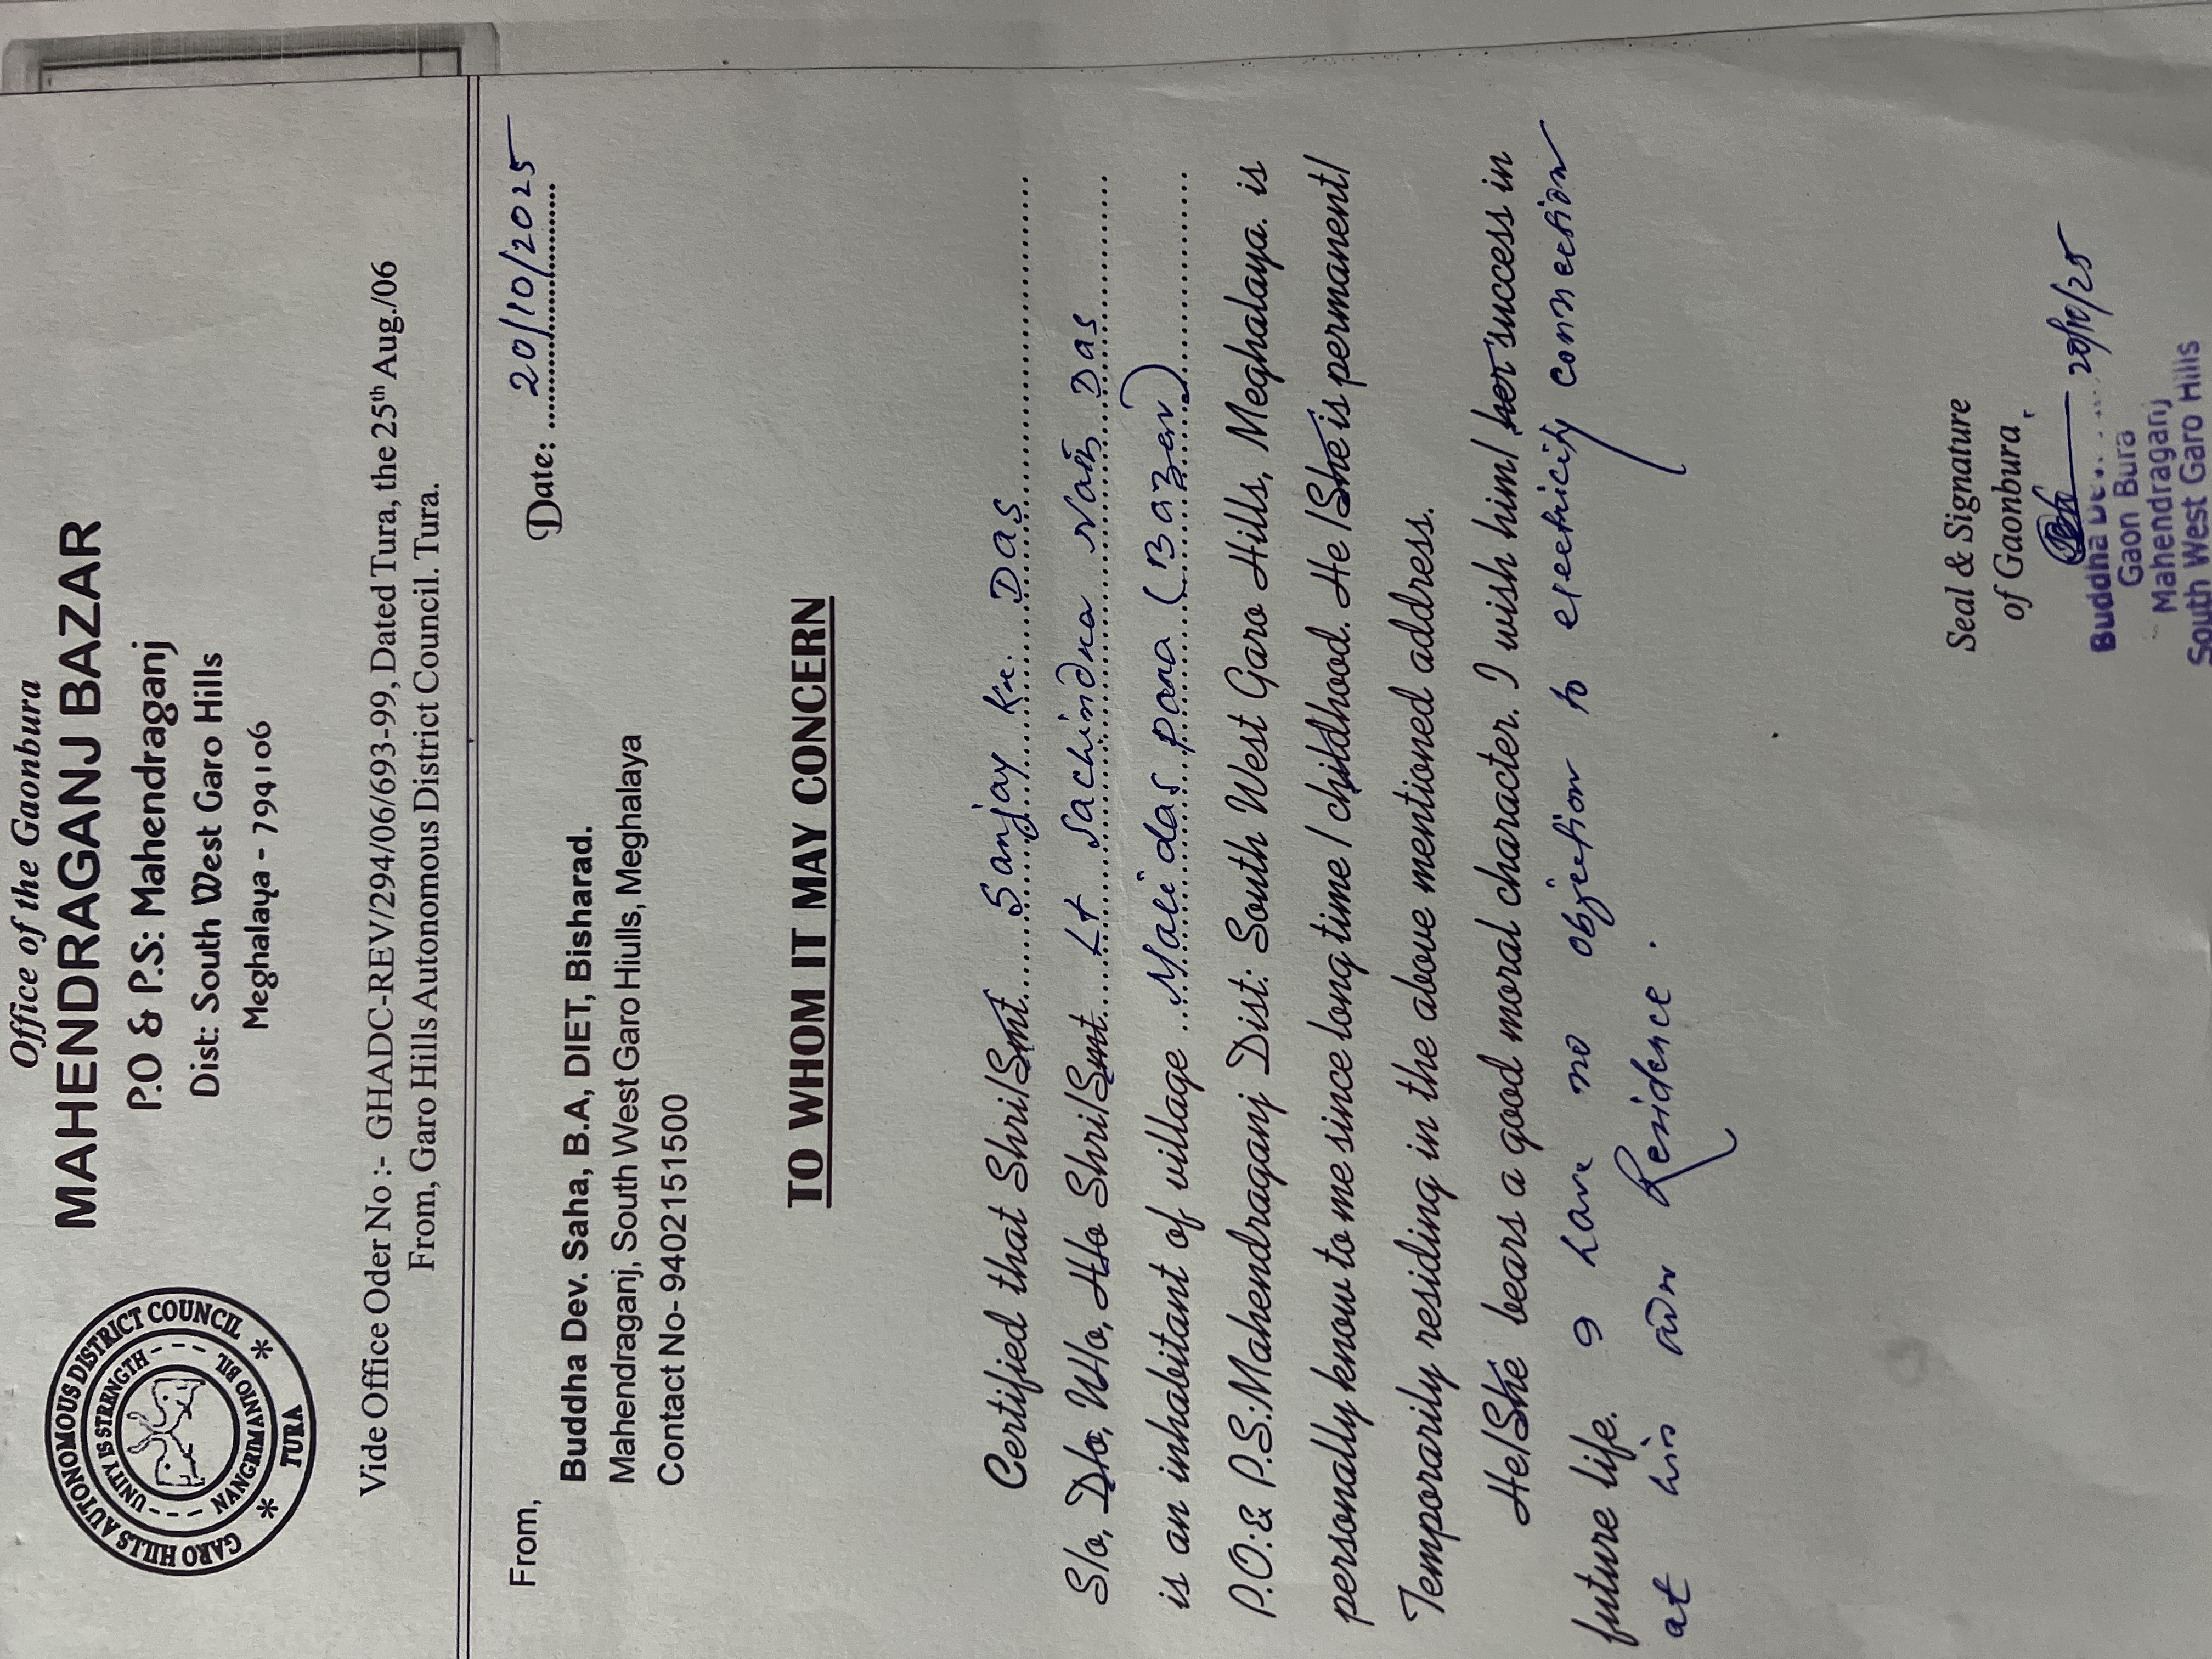 GARO HILLS AUTONOMOUS DISTRICT COUNCIL
* TURA *
UNITY IS STRENGTH
NANGRIMANIO BIL
Office of the Gaonbura
MAHENDRAGANJ BAZAR
P.O & P.S: Mahendraganj
Dist: South West Garo Hills
Meghalaya - 794106
Vide Office Oder No :- GHADC-REV/294/06/693-99, Dated Tura, the 25th Aug./06
From, Garo Hills Autonomous District Council. Tura.
Date: 20/10/2025
From,
Buddha Dev. Saha, B.A, DIET, Bisharad.
Mahendraganj, South West Garo Hiulls, Meghalaya
Contact No- 9402151500
TO WHOM IT MAY CONCERN
Certified that Shri/Smt. Sanjay Kr. Das
S/o, D/o, W/o, H/o Shri/Smt. Lt Sachindra Nath Das
is an inhabitant of village Mali das para (Bazer)
P.O:& P.S:Mahendraganj Dist: South West Garo Hills, Meghalaya. is
personally know to me since long time / childhood. He /She is permanent/
Temporarily residing in the above mentioned address.
He/She bears a good moral character. I wish him/ her success in
future life. I have no objection to electricity connection
at his own Residence.
Seal & Signature
of Gaonbura
20/10/25
Buddha
Gaon Bura
Mahendraganj
South West Garo Hills